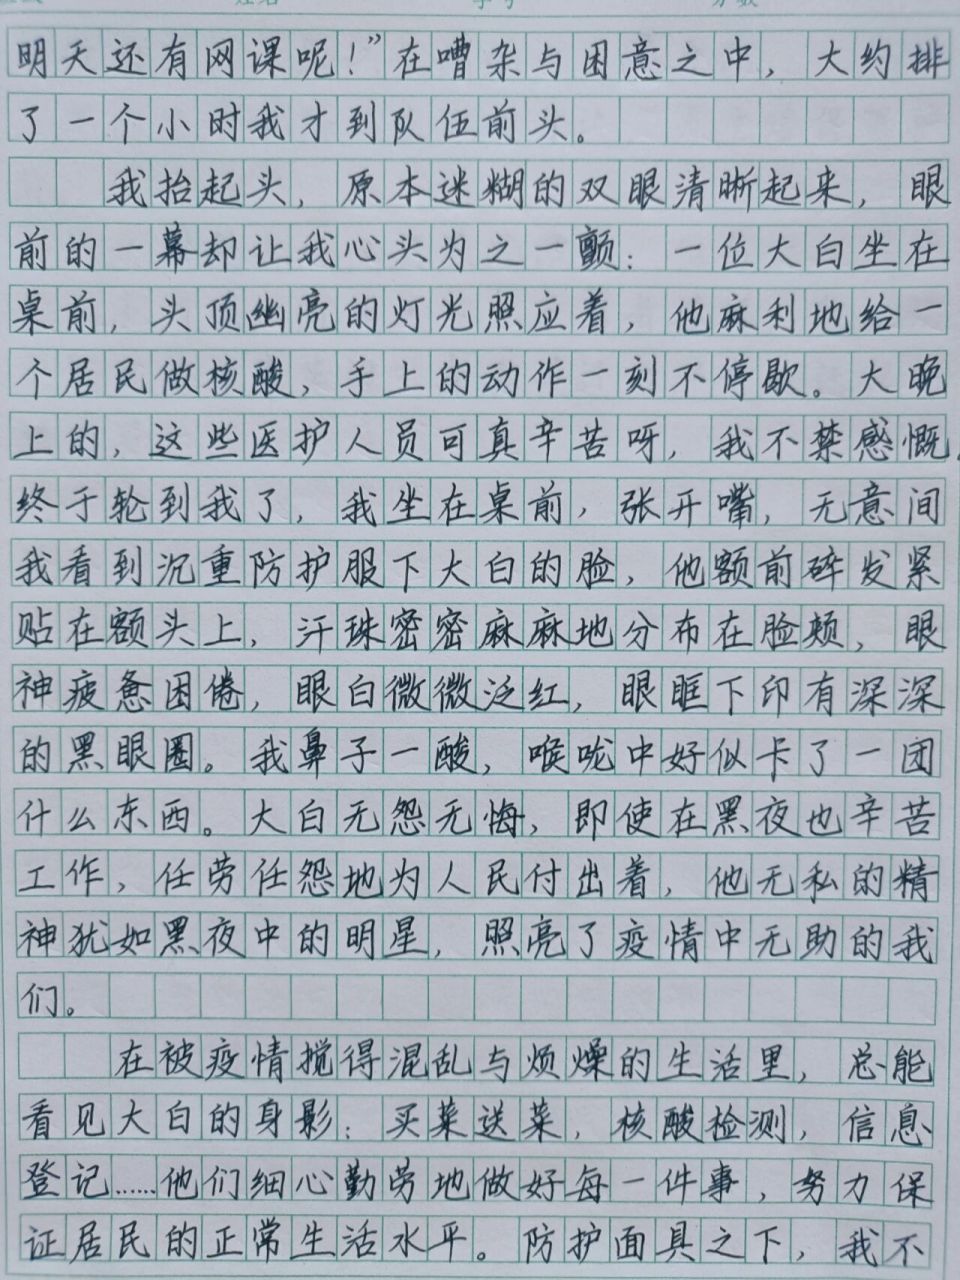 明天还有网课呢！”在嘈杂与困意之中，大约排
了一个小时我才到队伍前头。
我抬起头，原本迷糊的双眼清晰起来，眼
前的一幕却让我心头为之一颤：一位大白坐在
桌前，头顶幽亮的灯光照应着，他麻利地给一
个居民做核酸，手上的动作一刻不停歇。大晚
上的，这些医护人员可真辛苦呀，我不禁感慨。
终于轮到我了，我坐在桌前，张开嘴，无意间
我看到沉重防护服下大白的脸，他额前碎发紧
贴在额头上，汗珠密密麻麻地分布在脸颊，眼
神疲惫困倦，眼白微微泛红，眼眶下印有深深
的黑眼圈。我鼻子一酸，喉咙中好似卡了一团
什么东西。大白无怨无悔，即使在黑夜也辛苦
工作，任劳任怨地为人民付出着，他无私的精
神犹如黑夜中的明星，照亮了疫情中无助的我
们。
在被疫情搅得混乱与烦燥的生活里，总能
看见大白的身影：买菜送菜，核酸检测，信息
登记……他们细心勤劳地做好每一件事，努力保
证居民的正常生活水平。防护面具之下，我不